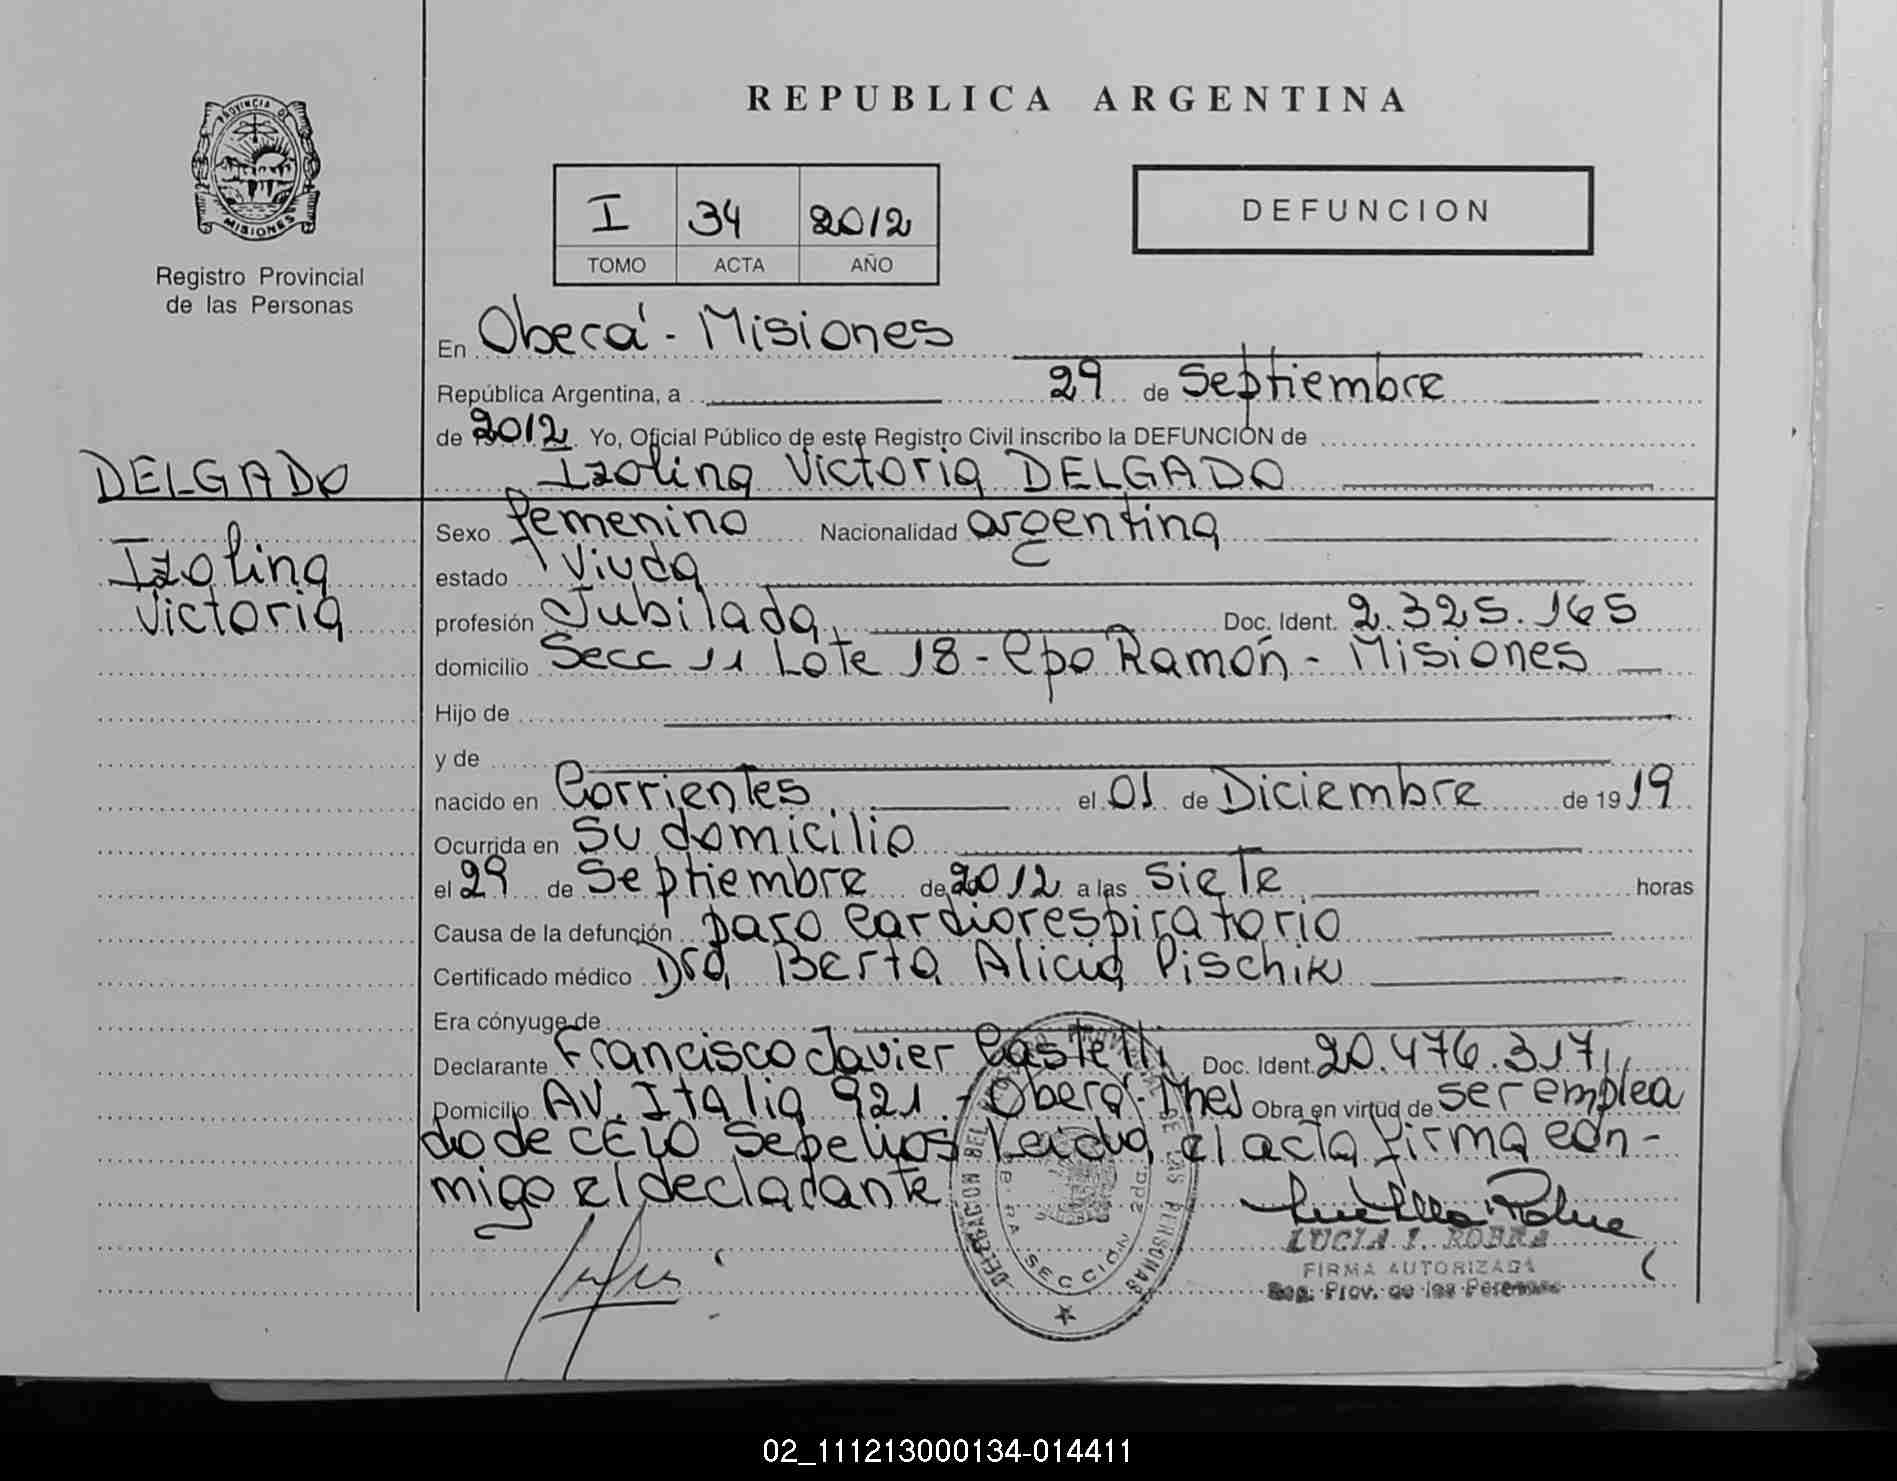 REPUBLICA ARGENTINA
PROVINCIA DE
MISIONES
Registro Provincial
de las Personas
I 34 2012
TOMO ACTA AÑO
DEFUNCION
En Oberá - Misiones
República Argentina, a 29 de Septiembre
de 2012 Yo, Oficial Público de este Registro Civil inscribo la DEFUNCIÓN de
Izolina Victoria DELGADO
DELGADO
Izolina
Victoria
Sexo femenino Nacionalidad argentina
estado Viuda
profesión Jubilada Doc. Ident. 2.325.165
domicilio Secc 11 Lote 18 - Cpo Ramón - Misiones
Hijo de
y de
nacido en Corrientes el 01 de Diciembre de 19 19
Ocurrida en Su domicilio
el 29 de Septiembre de 2012 a las siete horas
Causa de la defunción paro cardiorespiratorio
Certificado médico Dra Berta Alicia Pischik
Era cónyuge de
Declarante Francisco Javier Castelli Doc. Ident. 20.476.317
Domicilio AV. Italia 921 - Oberá - Mnes Obra en virtud de ser emplea
do de CELO Sepelios Leida el acta firma con-
migo el declarante
DELEGACION DEL REGISTRO PROVINCIAL DE LAS PERSONAS
OBERA SECCION 2da.
LUCIA I. ROBRA
FIRMA AUTORIZADA
Reg. Prov. de las Personas
02_111213000134-014411